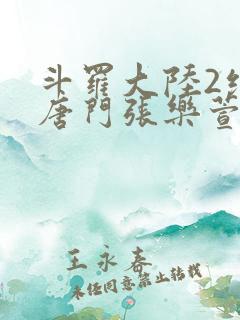 斗羅大陸2絕
唐門張樂萱
王永春
未經同意禁止轉載